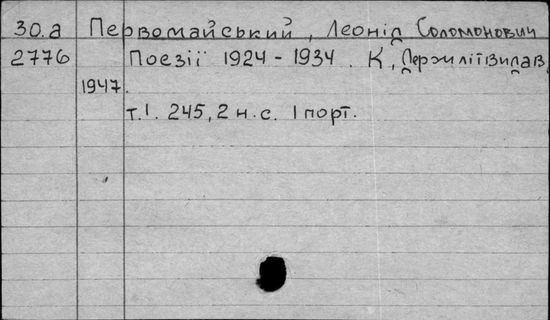 30.а Первомайський, Леонід Соломонович
2776 Поезії 1924 - 1934. К, Держлітвидав,
1947.
т.1. 245, 2 н.с. 1 порт.